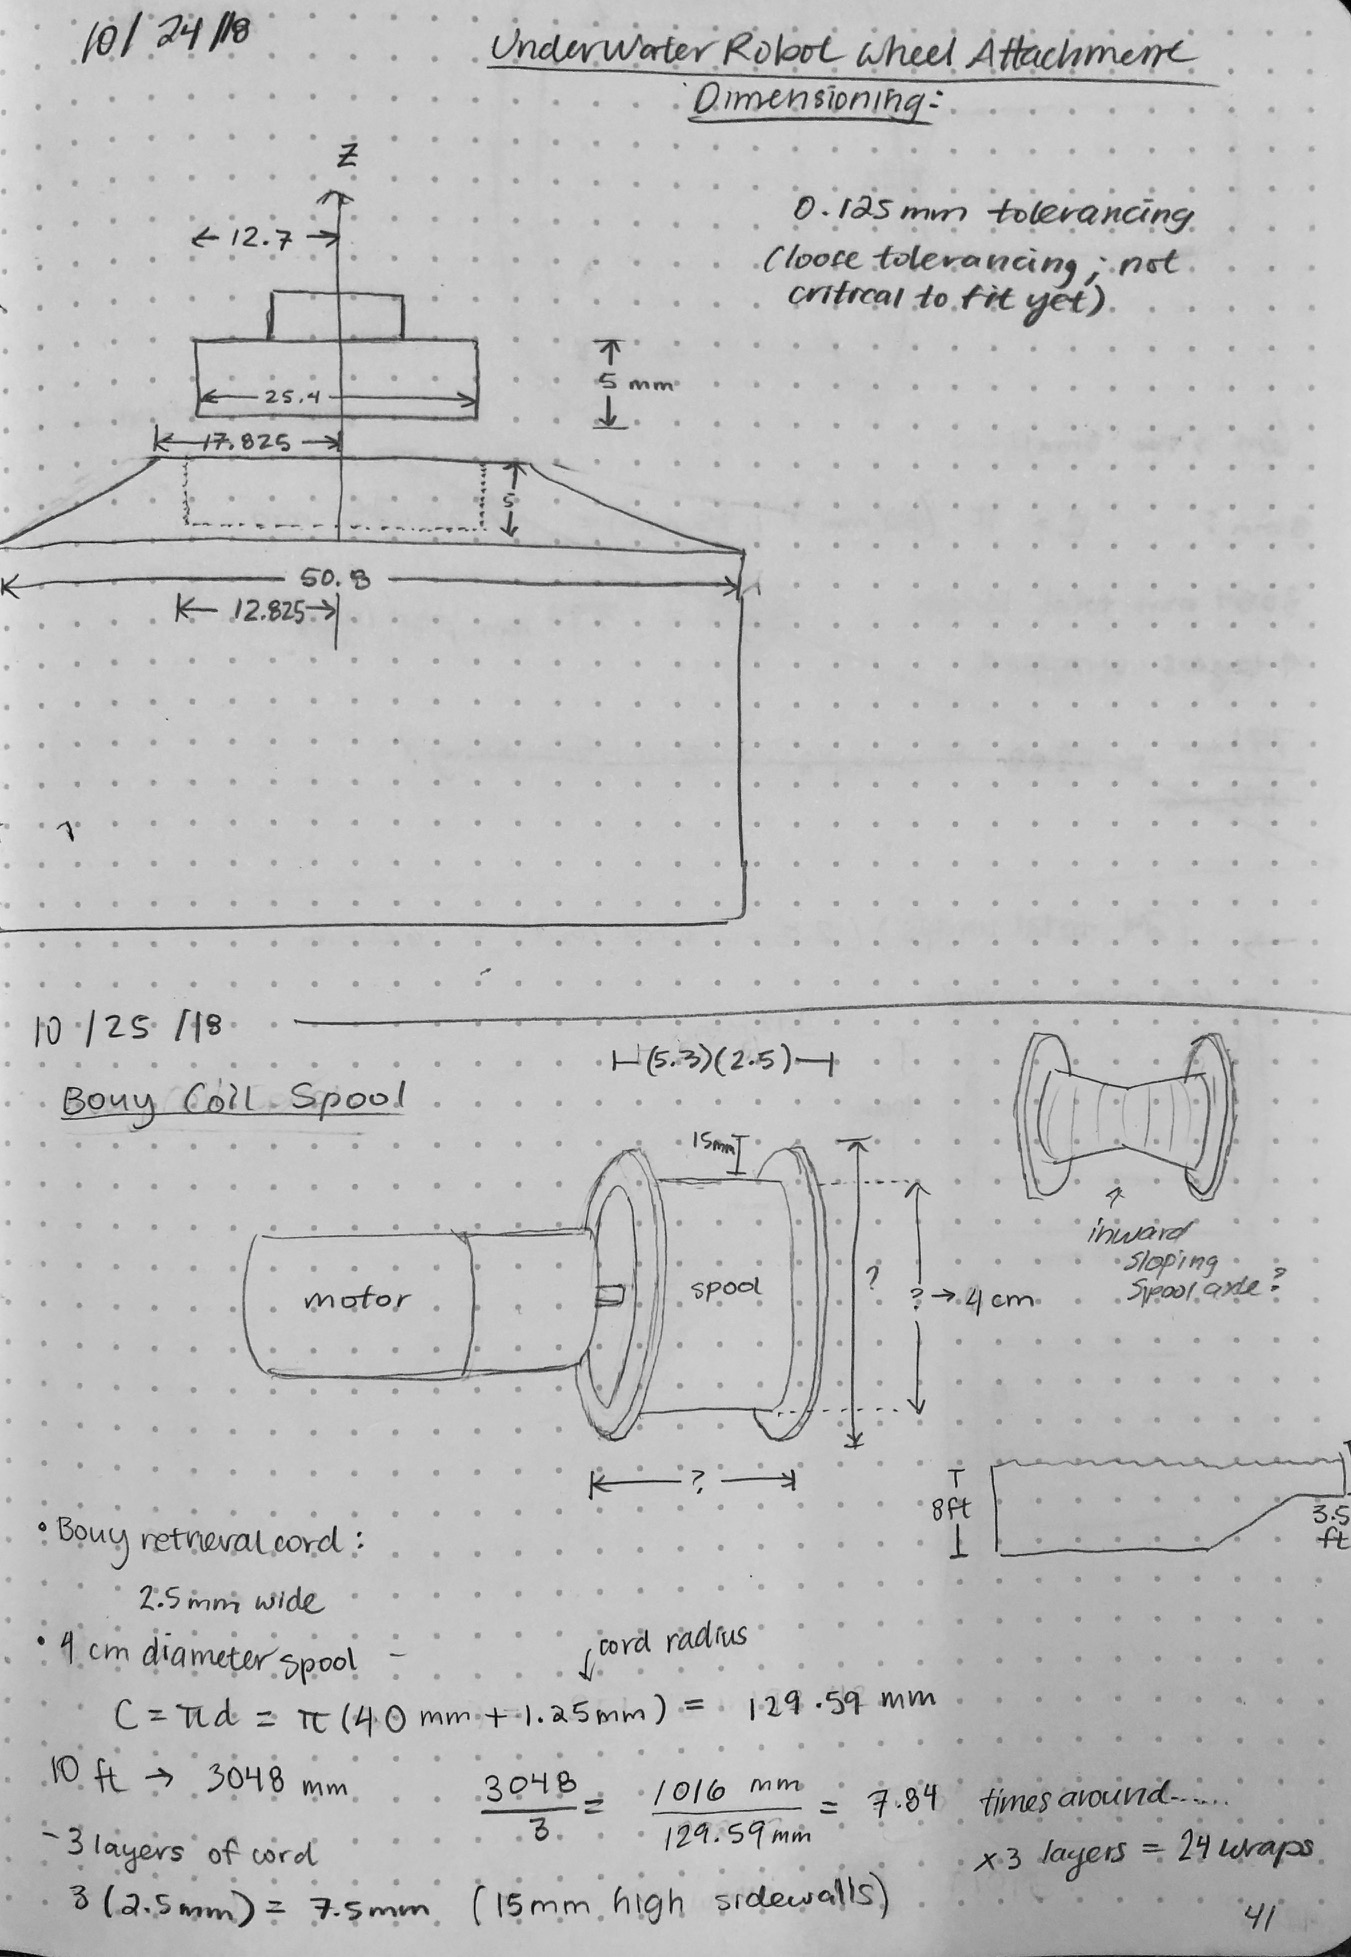 10/24/18
Underwater Robot Wheel Attachment
Dimensioning:
Z
12.7
0.125mm tolerancing
(loose tolerancing; not
critical to fit yet)
5 mm
25.4
17.825
5
50.8
12.825
10/25/18
Bouy Coil Spool
(5.3)(2.5)
15mm
motor
spool
?
? → 4 cm
inward
sloping
spool axle?
?
8ft
3.5
ft
• Bouy retrieval cord:
2.5mm wide
• 4 cm diameter spool -
cord radius
C = πd = π(40 mm + 1.25mm) = 129.59 mm
10 ft → 3048 mm
3048/3 = 1016 mm/129.59mm = 7.84 times around......
- 3 layers of cord
x3 layers = 24 wraps
3(2.5mm) = 7.5mm (15mm high sidewalls)
41